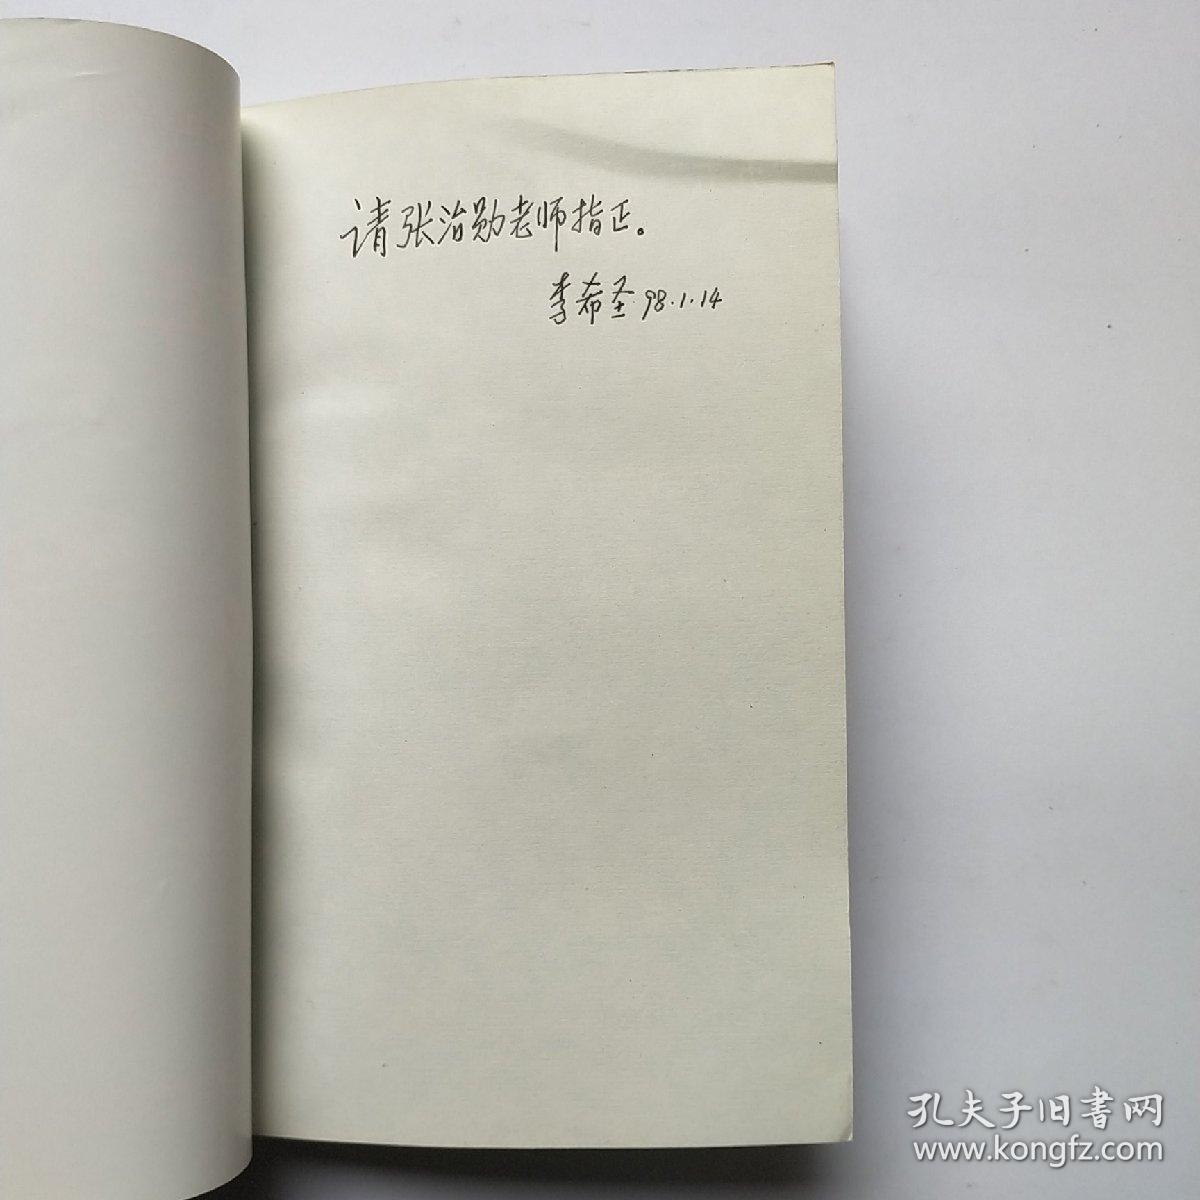 请张治勋老师指正。
李希圣 98.1.14
孔夫子旧书网
www.kongfz.com